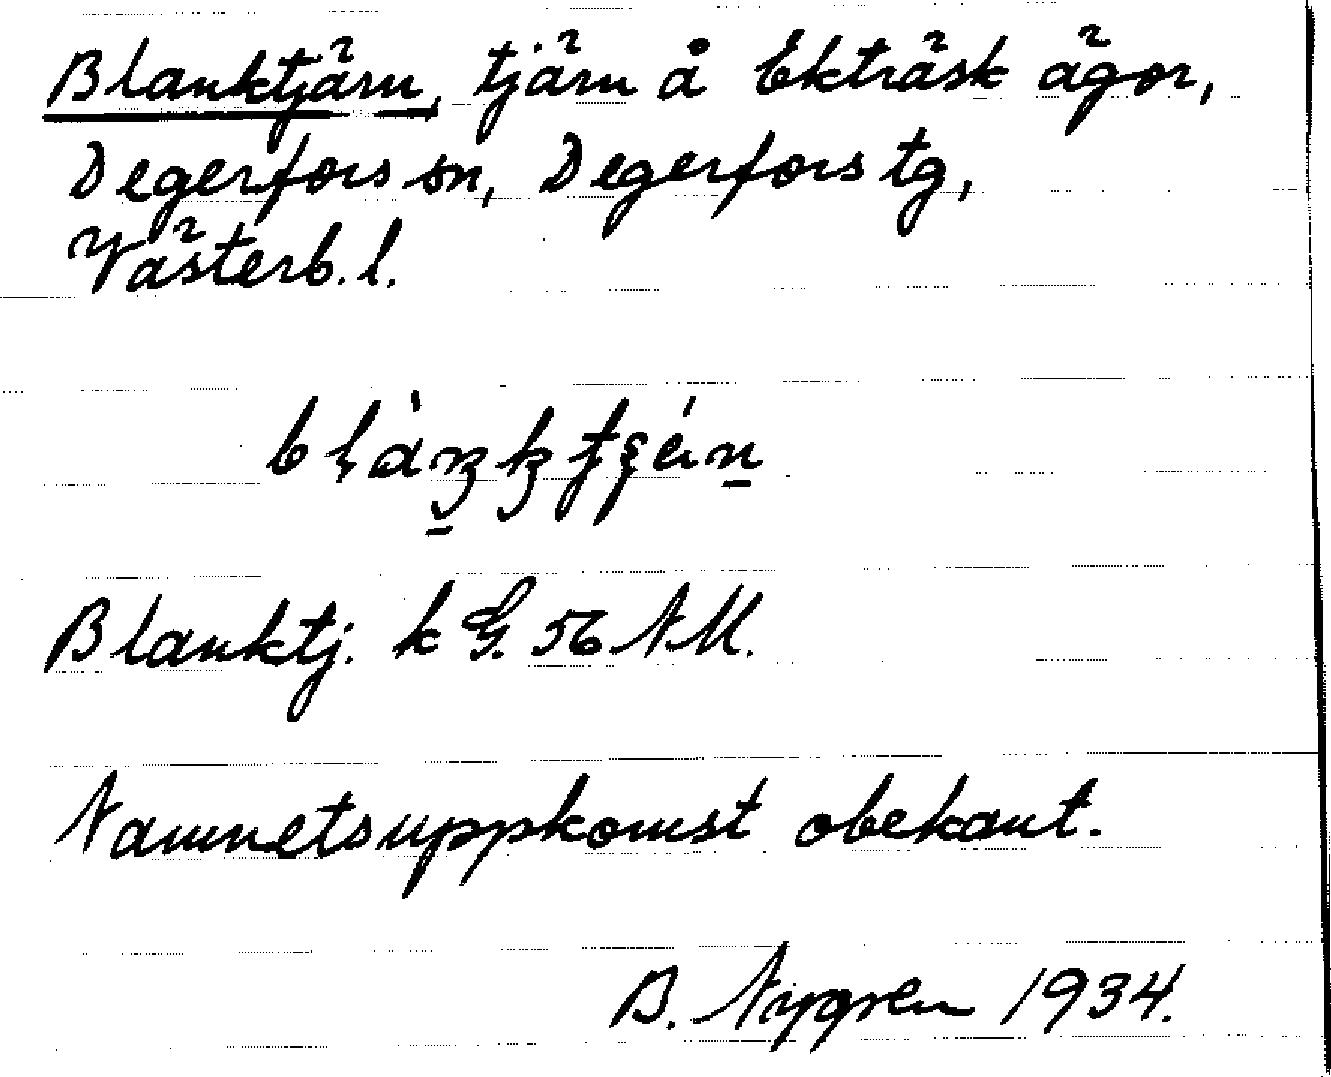 Blanktjärn, tjärn å Ekträsk ägor,
Degerfors sn, Degerfors tg,
Västerb. l.
Blanktj. k G. 56 NM.
Namnetsuppkomst obekant.
B. Nygren 1934.